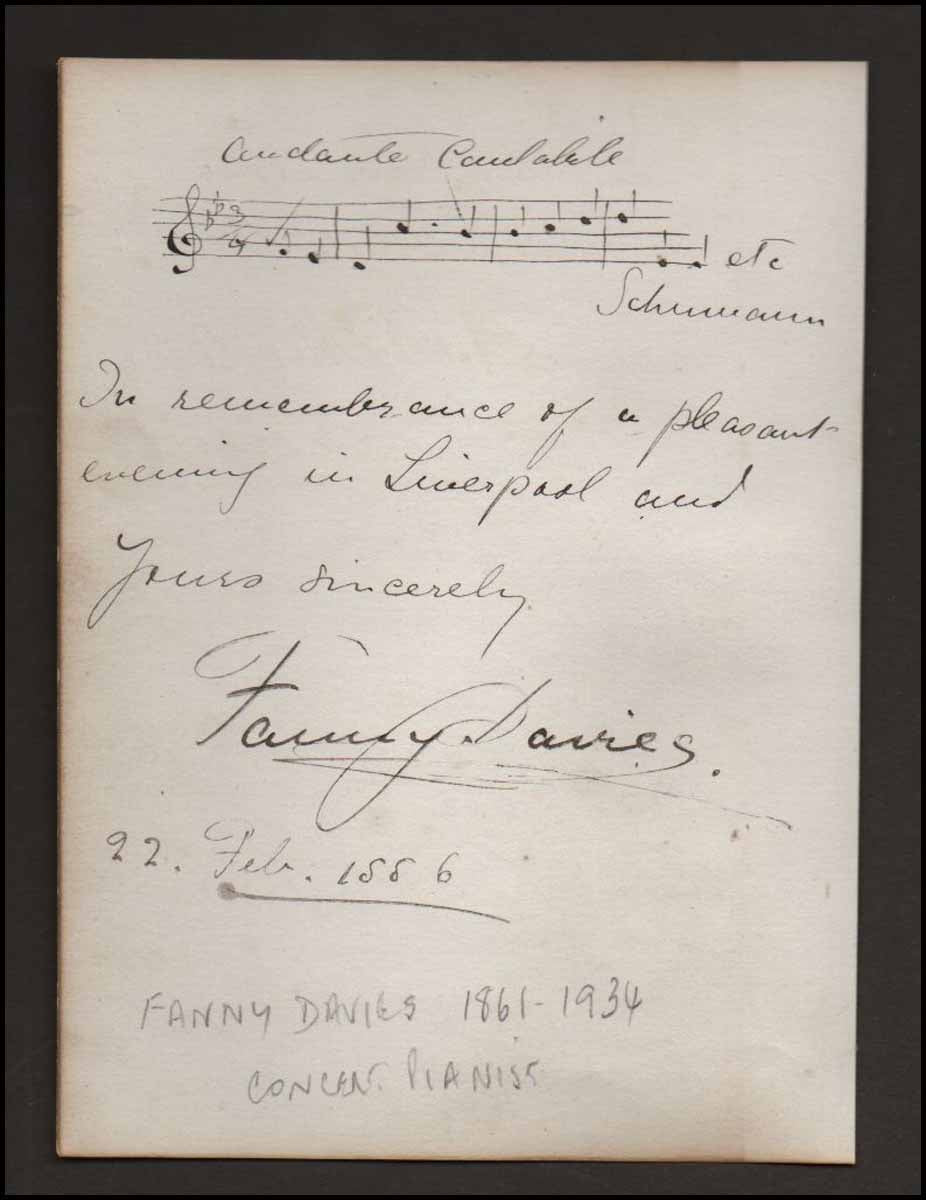 Andante Cantabile
3
4
etc
Schumann
In remembrance of a pleasant
evening in Liverpool and
Yours sincerely
Fanny Davies.
22. Feb. 1886
FANNY DAVIES 1861-1934
CONCERT PIANIST